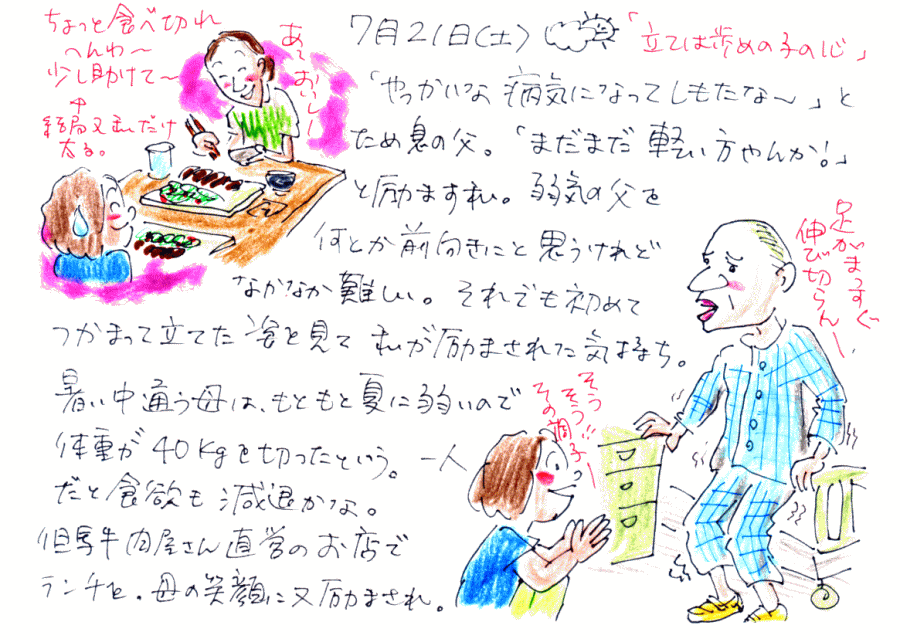 7月21日(土)
「立てば歩めの子の心」
「やっかいな病気になってしもたな〜」と
ため息の父。「まだまだ軽い方やんか!」
と励ますすれ。弱気の父を
何とか前向きにと思うけれど
なかなか難しい。それでも初めて
つかまって立てた姿を見て私が励まされた気持ち。
暑い中通う母は、もともと夏に弱いので
体重が40kgを切ったという。一人
だと食欲も減退かな。
但馬牛肉屋さん直営のお店で
ランチを。母の笑顔に又励まされ。
ちょっと食べ切れ
へんわ〜
少し助けて〜
結局又私だけ
太る。
あ〜おいしー
足がまっすぐ
伸び切らん〜
そう
そう!!
その調子〜